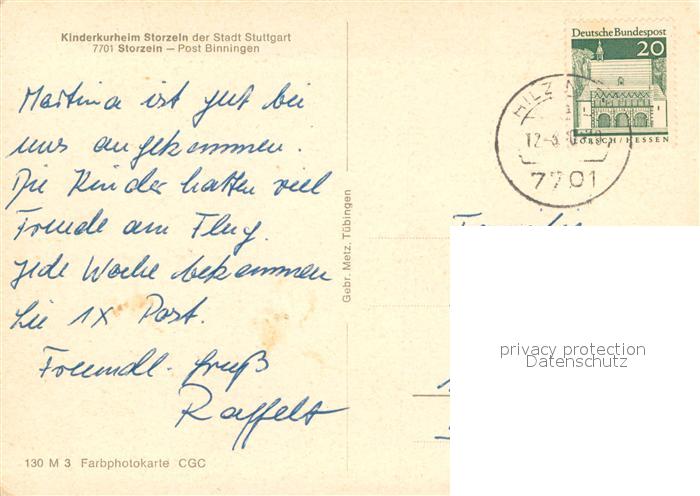 Kinderkurheim Storzeln der Stadt Stuttgart
7701 Storzeln — Post Binningen
Deutsche Bundespost
20
LORSCH/HESSEN
HILZ
12.-3.
7701
Martina ist gut bei
uns angekommen.
Die Kinder hatten viel
Freude am Flug.
Jede Woche bekommen
Sie 1x Post.
Freundl. Gruß
Raffelt
Gebr. Metz, Tübingen
privacy protection
Datenschutz
130 M 3 Farbphotokarte CGC